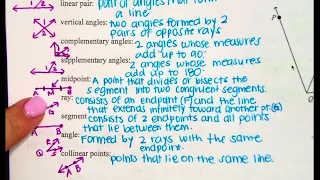 linear pair: pair of angles that form
a line
vertical angles: two angles formed by 2
pairs of opposite rays
complementary angles: 2 angles whose measures
add up to 90°
supplementary angles: 2 angles whose measures
add up to 180°
midpoint: A point that divides or bisects the
segment into two congruent segments.
ray: consists of an endpoint (F) and the line
that extends infinitely toward another pt. (G)
segment: consists of 2 endpoints and all points
that lie between them.
angle: Formed by 2 rays with the same
endpoint.
collinear points: points that lie on the same line.